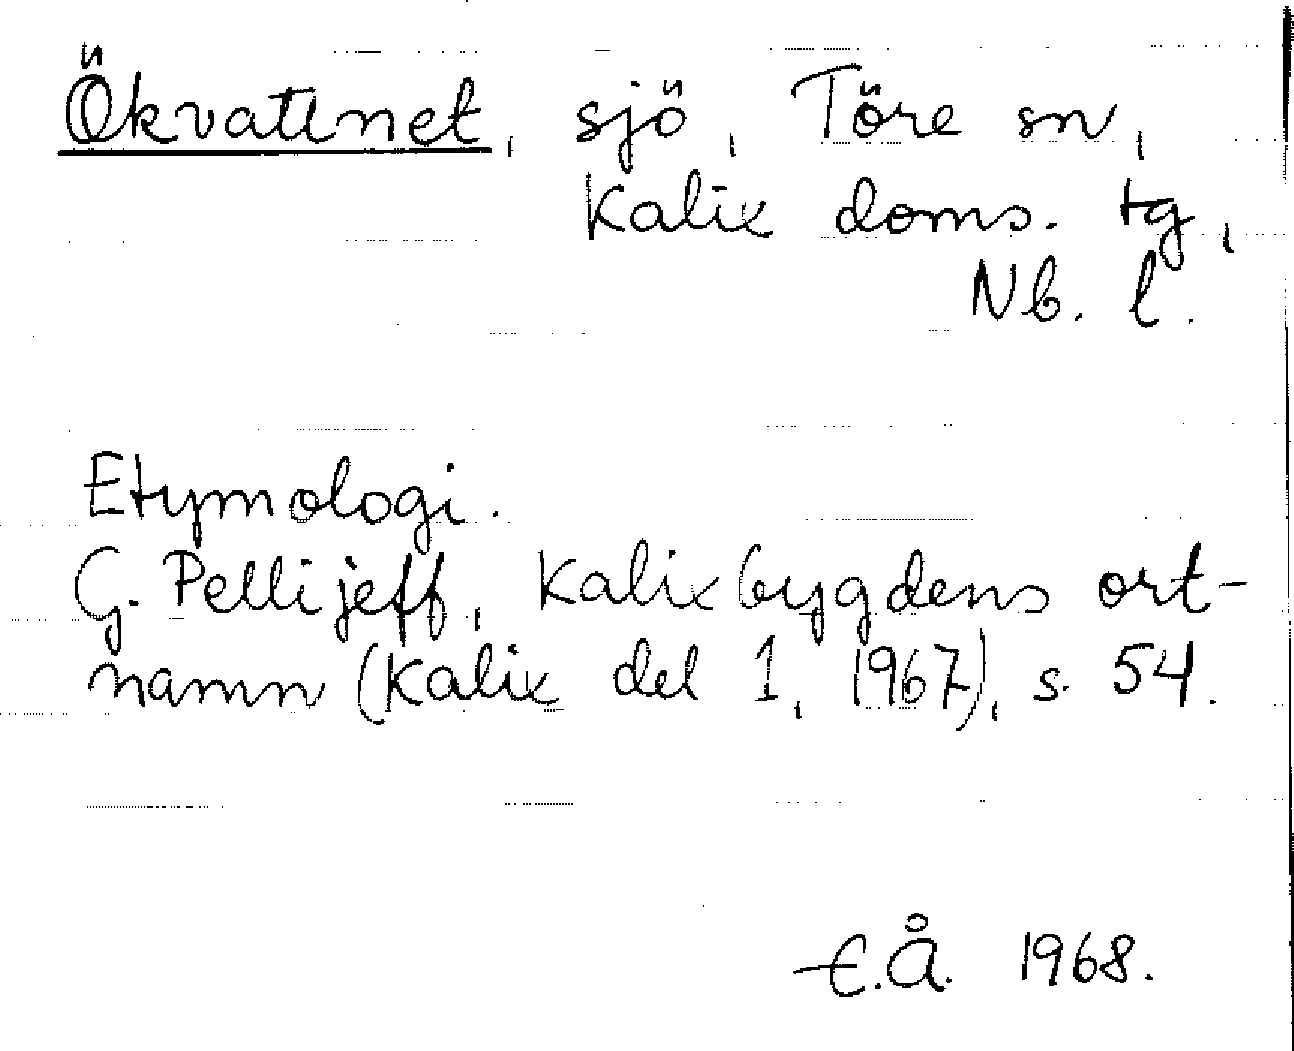 Ökvattnet, sjö, Töre sn,
Kalix doms. tg,
Nb. l.
Etymologi.
G. Pellijeff, Kalixbygdens ort-
namn (Kalix del 1, 1967), s. 54.
E.Å. 1968.